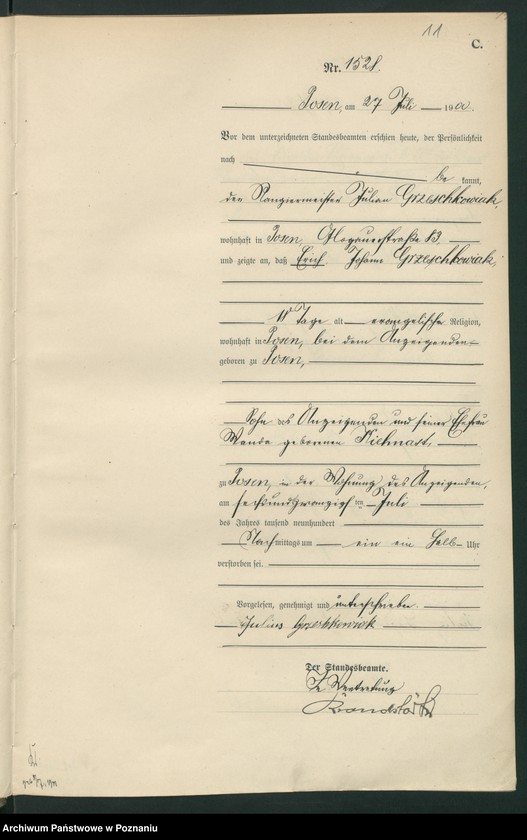 11
C.
Nr. 1528.
Posen, am 27 Juli 1900.
Vor dem unterzeichneten Standesbeamten erschien heute, der Persönlichkeit
nach
be kannt,
der Rangiermeister Julian Grzeschkowiak,
wohnhaft in Posen, Glogauerstraße 83,
und zeigte an, daß Erich Johann Grzeschkowiak,
Tage alt evangelische Religion,
wohnhaft in Posen, bei dem Anzeigenden
geboren zu Posen,
Sohn des Anzeigenden und seiner Ehefrau
Wanda geborenen Kiehnast,
zu Posen, in der Wohnung des Anzeigenden,
am sechsundzwanzigsten Juli
des Jahres tausend neunhundert
Nachmittags um ein ein halb Uhr
verstorben sei.
Vorgelesen, genehmigt und unterschrieben.
Grzeschkowiak
Der Standesbeamte.
In Vertretung
Archiwum Państwowe w Poznaniu